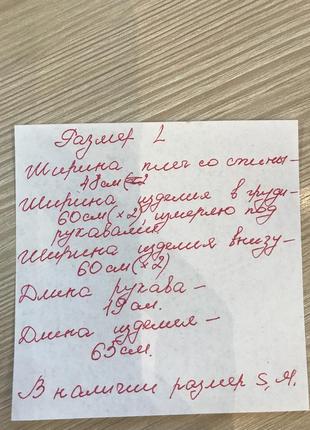 Размер L
Ширина плеч со спины-
48см
Ширина изделия в груди-
60см(×2), измеряю под
рукавами
Ширина изделия внизу-
60см(×2)
Длина рукава-
19см.
Длина изделия-
65см.
В наличии размер S, M.